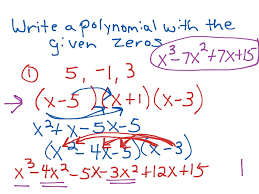 Write a polynomial with the
given zeros
x³-7x²+7x+15
① 5, -1, 3
→ (x-5)(x+1)(x-3)
x²+x-5x-5
(x²-4x-5)(x-3)
x³-4x²-5x-3x²+12x+15